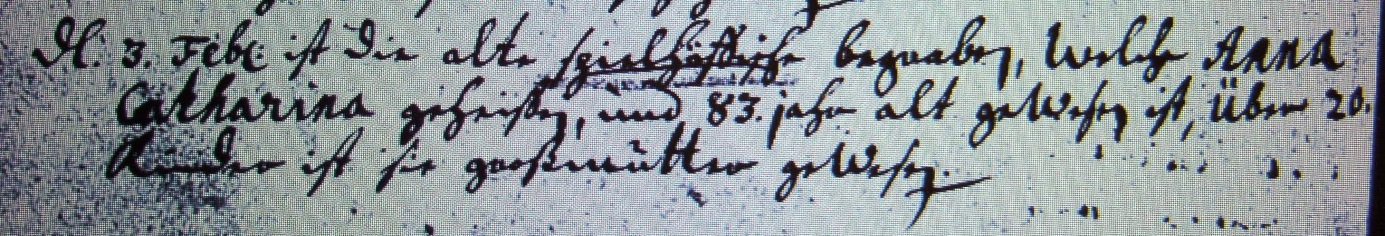 Dl. 3. Febr. ist die alte spielhöffische begraben, welche Anna
Catharina geheißen, und 83. jahr alt gewesen ist, über 20.
Kinder ist sie großmutter gewesen.